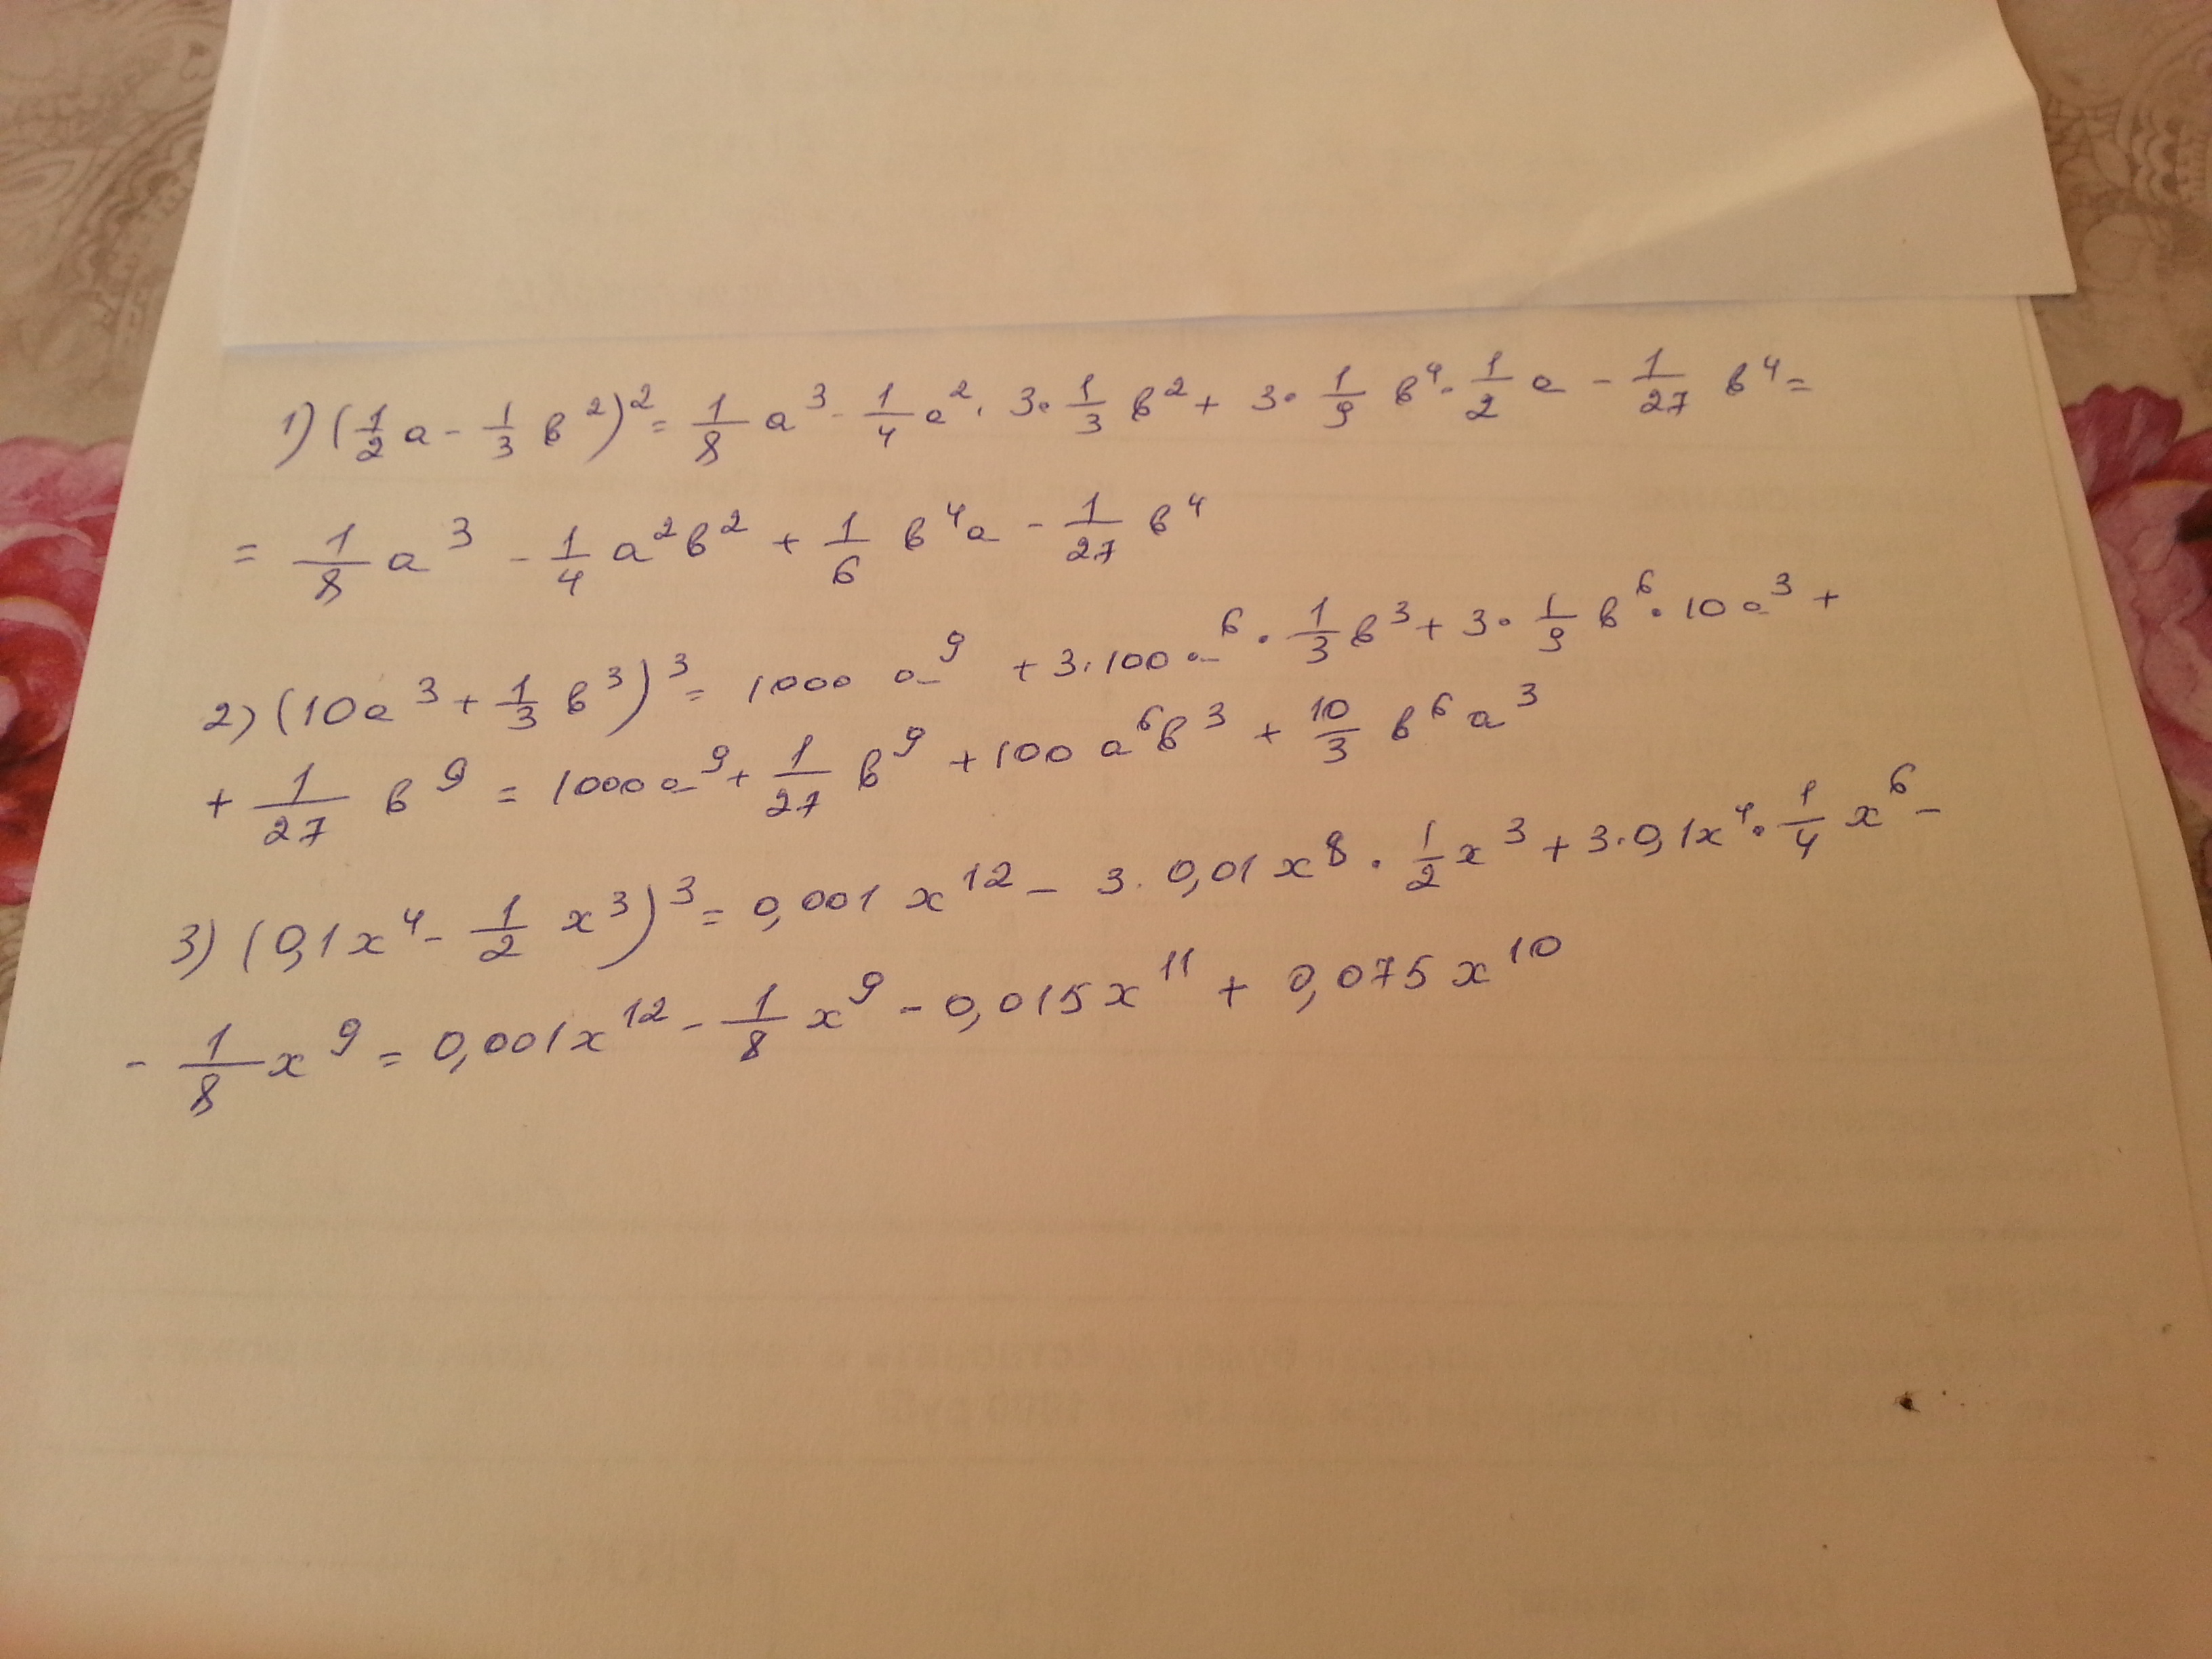 1) (1/2 a - 1/3 b²)² = 1/8 a³ - 1/4 a² · 3 · 1/3 b² + 3 · 1/9 b⁴ · 1/2 a - 1/27 b⁴ =
= 1/8 a³ - 1/4 a²b² + 1/6 b⁴a - 1/27 b⁴
2) (10a³ + 1/3 b³)³ = 1000 a⁹ + 3 · 100 a⁶ · 1/3 b³ + 3 · 1/9 b⁶ · 10a³ +
+ 1/27 b⁹ = 1000a⁹ + 1/27 b⁹ + 100 a⁶b³ + 10/3 b⁶a³
3) (0,1x⁴ - 1/2 x³)³ = 0,001x¹² - 3 · 0,01x⁸ · 1/2 x³ + 3 · 0,1x⁴ · 1/4 x⁶ -
- 1/8 x⁹ = 0,001x¹² - 1/8 x⁹ - 0,015x¹¹ + 0,075x¹⁰